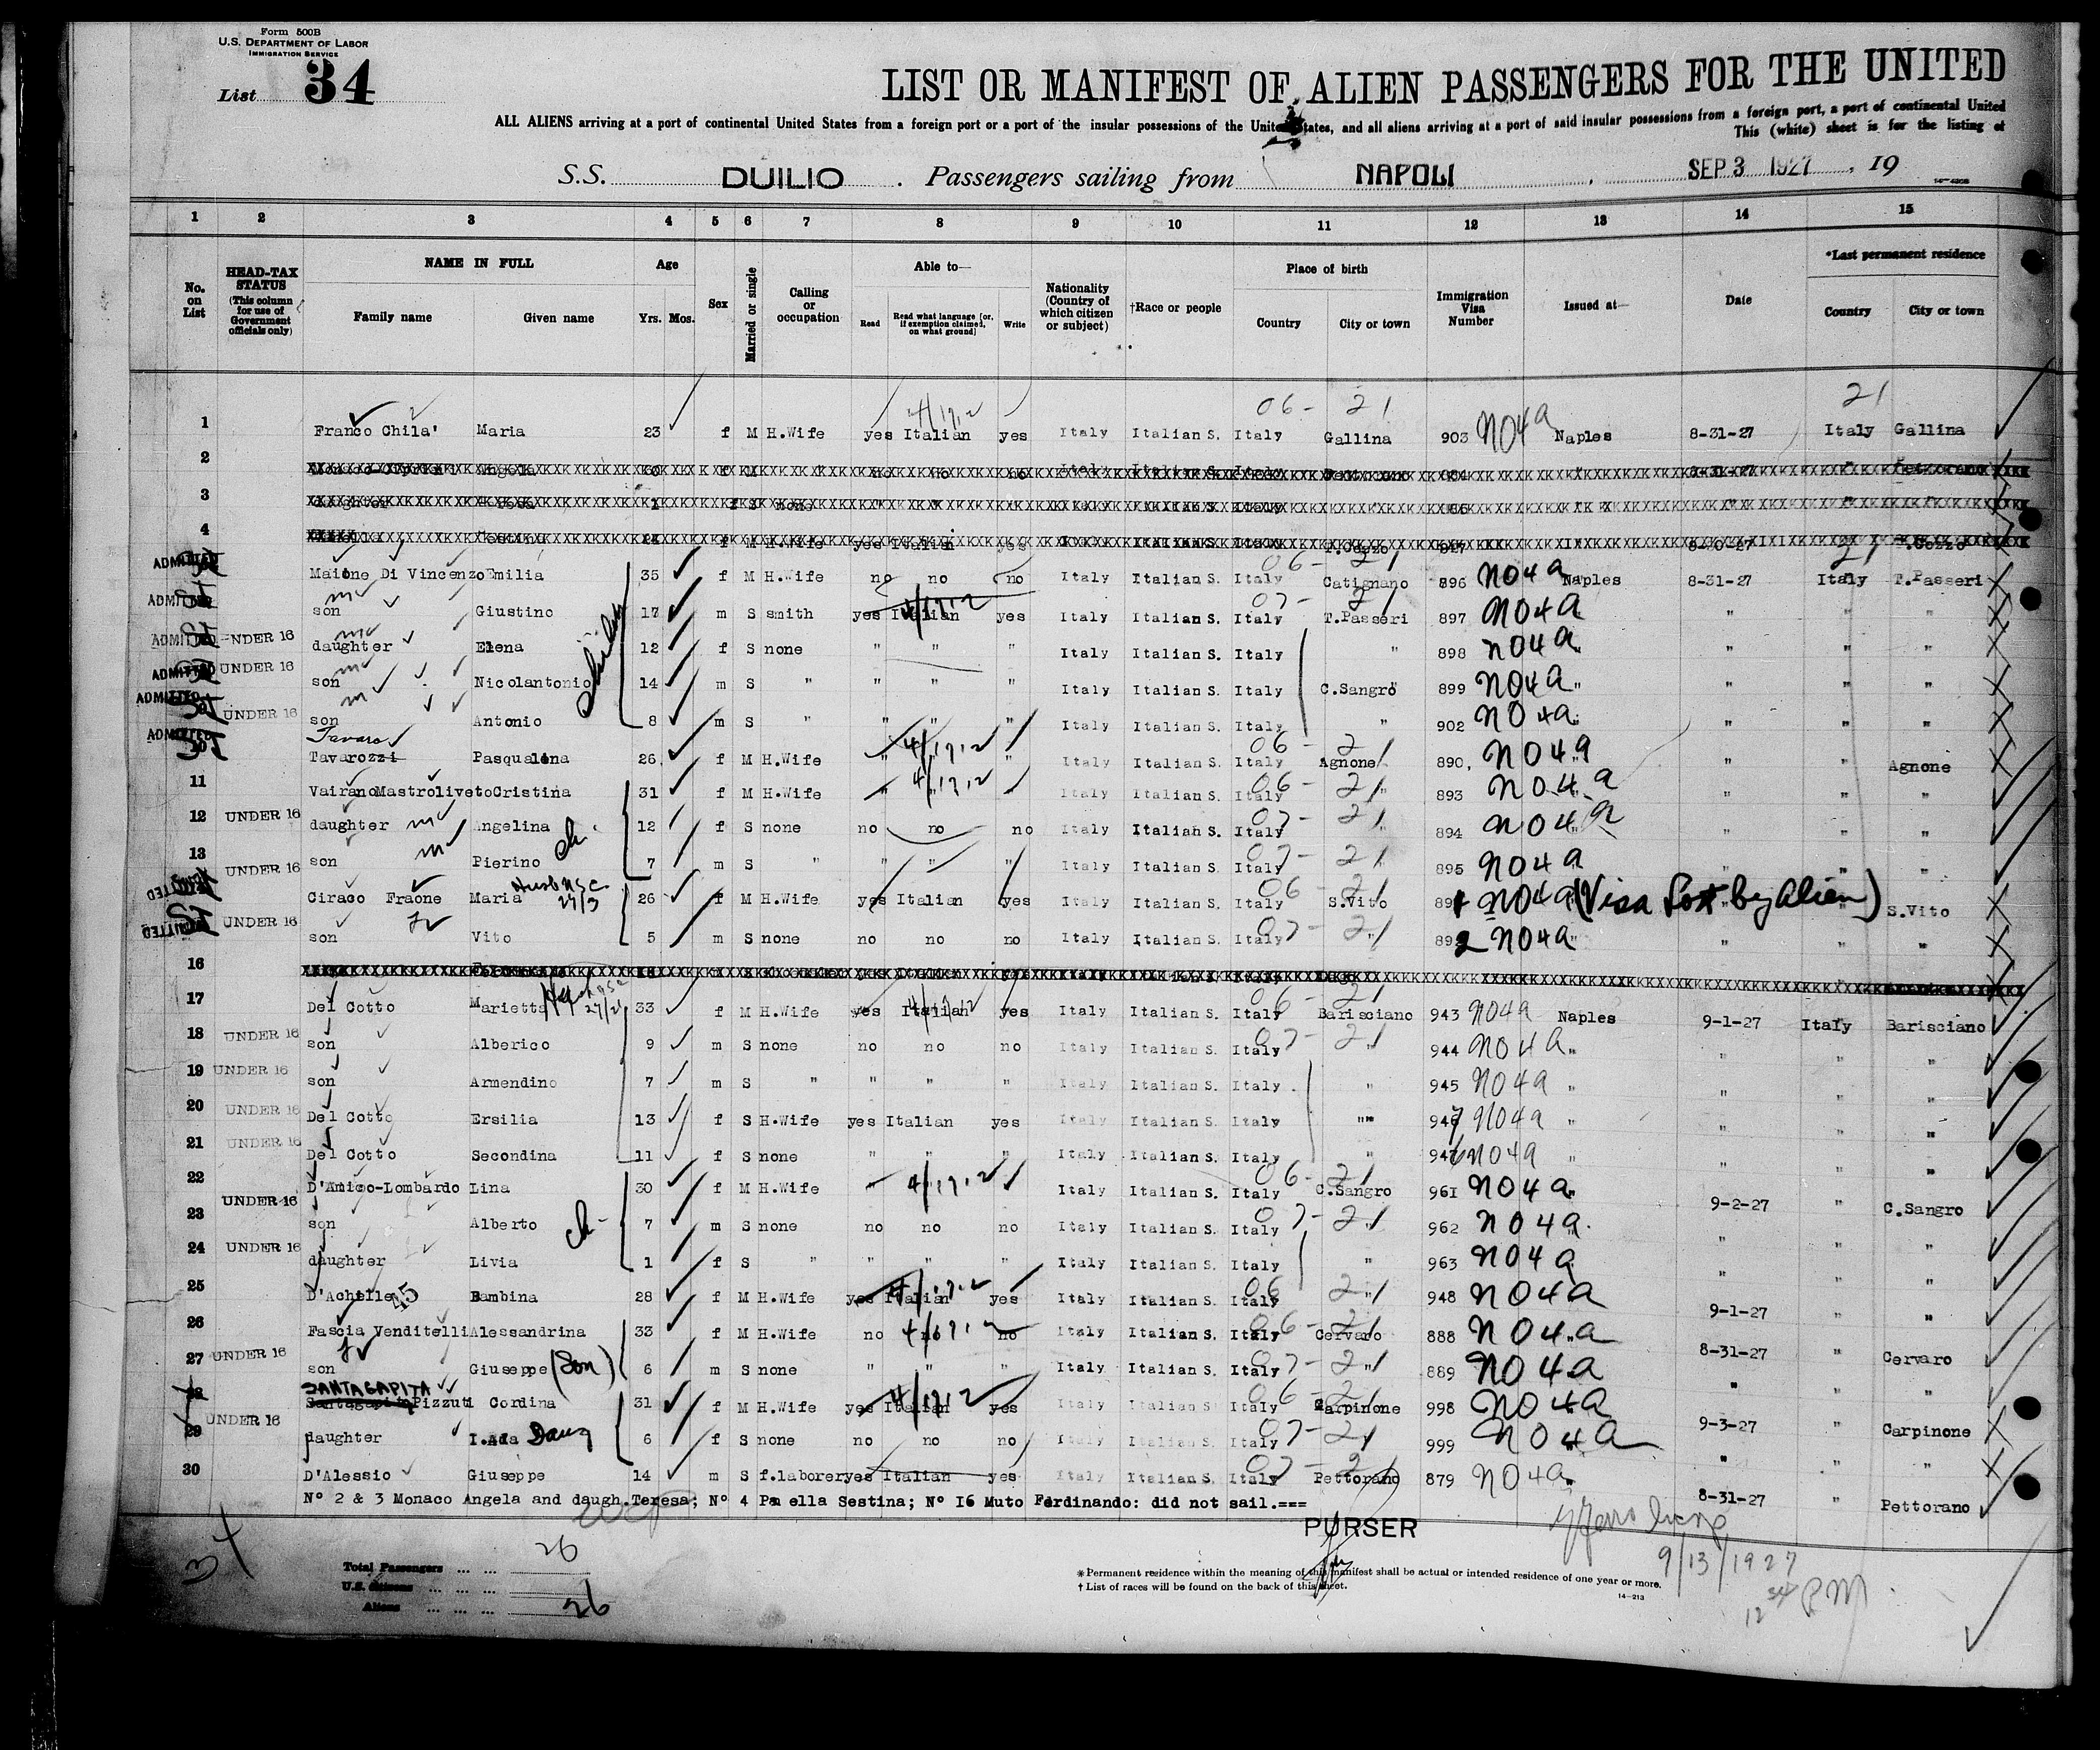 Form 500B
U.S. DEPARTMENT OF LABOR
IMMIGRATION SERVICE
List 34
LIST OR MANIFEST OF ALIEN PASSENGERS FOR THE UNITED
ALL ALIENS arriving at a port of continental United States from a foreign port or a port of the insular possessions of the United States, and all aliens arriving at a port of said insular possessions from a foreign port, a port of continental United
This (white) sheet is for the listing of
S.S. DUILIO . Passengers sailing from NAPOLI , SEP 3 1927 , 19
1 2 3 4 5 6 7 8 9 10 11 12 13 14 15
No. on List
HEAD-TAX STATUS (This column for use of Government officials only)
NAME IN FULL Family name Given name
Age Yrs. Mos.
Sex
Married or single
Calling or occupation
Able to— Read Read what language [or, if exemption claimed, on what ground] Write
Nationality (Country of which citizen or subject)
†Race or people
Place of birth Country City or town
Immigration Visa Number
Issued at—
Date
*Last permanent residence Country City or town
4/17.2 06 - 21 21
1 Franco Chila' Maria 23 f M H.Wife yes Italian yes Italy Italian S. Italy Gallina 903 NO4a Naples 8-31-27 Italy Gallina
2
3
4
ADMITTED Maione Di Vincenzo Emilia 35 f M H.Wife no no no Italy Italian S. Italy 06 - 21 Catignano 896 NO4a Naples 8-31-27 Italy T.Passeri
ADMITTED son Giustino 17 m S smith yes Italian yes Italy Italian S. Italy 07 - 21 T.Passeri 897 NO4a " " "
ADMITTED UNDER 16 daughter Elena 12 f S none " " " Italy Italian S. Italy " 898 NO4a " " " "
ADMITTED UNDER 16 son Nicolantonio 14 m S " " " " Italy Italian S. Italy C.Sangro 899 NO4a " " " "
ADMITTED UNDER 16 son Antonio 8 m S " " " " Italy Italian S. Italy " 902 NO4a " " "
Tavaro
ADMITTED 10 Tavarozzi Pasqualina 26 f M H.Wife " " " Italy Italian S. Italy 06 - 21 Agnone 890 NO4a " " Agnone
11 Vairano Mastroliveto Cristina 31 f M H.Wife " " " Italy Italian S. Italy 06 - 21 " 893 NO4a " " "
12 UNDER 16 daughter Angelina ch. 12 f S none no no no Italy Italian S. Italy 07 - 21 " 894 NO4a " " "
13 UNDER 16 son Pierino 7 m S " " " " Italy Italian S. Italy 07 - 21 895 NO4a " " "
ADMITTED Ciraco Fraone Maria 26 f M H.Wife yes Italian yes Italy Italian S. Italy 06 - 21 S.Vito 891 NO4a (Visa lost by alien) S.Vito
ADMITTED UNDER 16 son Vito 5 m S none no no no Italy Italian S. Italy 07 - 21 892 NO4a " " " "
16
17 Del Cotto Marietta 33 f M H.Wife yes Italian yes Italy Italian S. Italy 06 - 21 Barisciano 943 NO4a Naples 9-1-27 Italy Barisciano
18 UNDER 16 son Alberico 9 m S none no no no Italy Italian S. Italy 07 - 21 " 944 NO4a " " " "
19 UNDER 16 son Armendino 7 m S " " " " Italy Italian S. Italy " 945 NO4a " " " "
20 UNDER 16 Del Cotto Ersilia 13 f S H.Wife yes Italian yes Italy Italian S. Italy "" 947 NO4a " " " "
21 UNDER 16 Del Cotto Secondina 11 f S none " " " Italy Italian S. Italy " 946 NO4a " " " "
22 D'Amico-Lombardo Lina 30 f M H.Wife " 4/17.2 Italy Italian S. Italy 06 - 21 C.Sangro 961 NO4a " 9-2-27 " C.Sangro
23 UNDER 16 son Alberto ch- 7 m S none no no no Italy Italian S. Italy 07 - 21 " 962 NO4a " " "
24 UNDER 16 daughter Livia 1 f S " " " " Italy Italian S. Italy " 963 NO4a " " "
25 D'Achille 45 Bambina 28 f M H.Wife yes Italian yes Italy Italian S. Italy 06 21 " 948 NO4a 9-1-27 " "
26 Fascia Venditelli Alessandrina 33 f M H.Wife no no no Italy Italian S. Italy 06 - 21 Cervaro 888 NO4a 8-31-27 " Cervaro
27 UNDER 16 son Giuseppe (Son) 6 m S none " " " Italy Italian S. Italy 07 - 21 " 889 NO4a " " "
SANTAGAPITA
28 Santagapita Pizzuti Cordina 31 f M H.Wife yes Italian yes Italy Italian S. Italy 06 - 21 Carpinone 998 NO4a 9-3-27 " Carpinone
29 UNDER 16 daughter I.Ada Daug 6 f S none no no no Italy Italian S. Italy 07 - 21 999 NO4a " " "
30 D'Alessio Giuseppe 14 m S f.laborer yes Italian yes Italy Italian S. Italy 07 - 21 Pettorano 879 NO4a 8-31-27 " Pettorano
Nº 2 & 3 Monaco Angela and daugh.Teresa; Nº 4 Pa ella Sestina; Nº I6 Muto Ferdinando: did not sail.===
PURSER
34
Total Passengers ... ... 26
U.S. citizens ... ... ...
Aliens ... ... ... 26
*Permanent residence within the meaning of this manifest shall be actual or intended residence of one year or more.
† List of races will be found on the back of this sheet.
14—213
9/13/1927
12 34 P.M